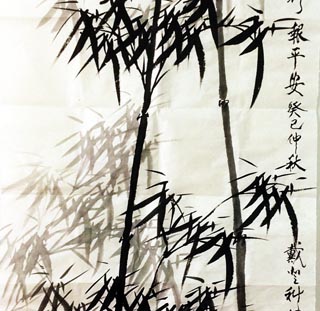 報平安癸巳仲秋戴莹科